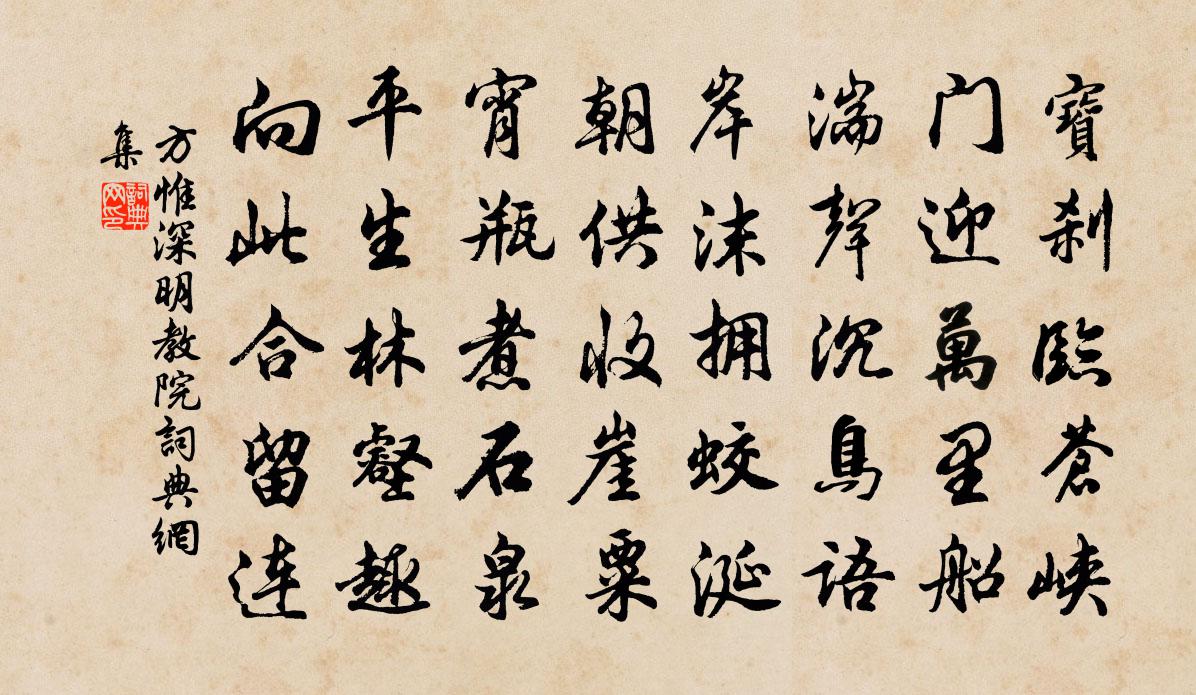 寶刹臨蒼峽
门迎萬里船
湍聲沉鳥語
岸沫拥蛟涎
朝供收崖粟
宵瓶煮石泉
平生林壑趣
向此合留连
方惟深明教院詞典網
集
詞典
网印